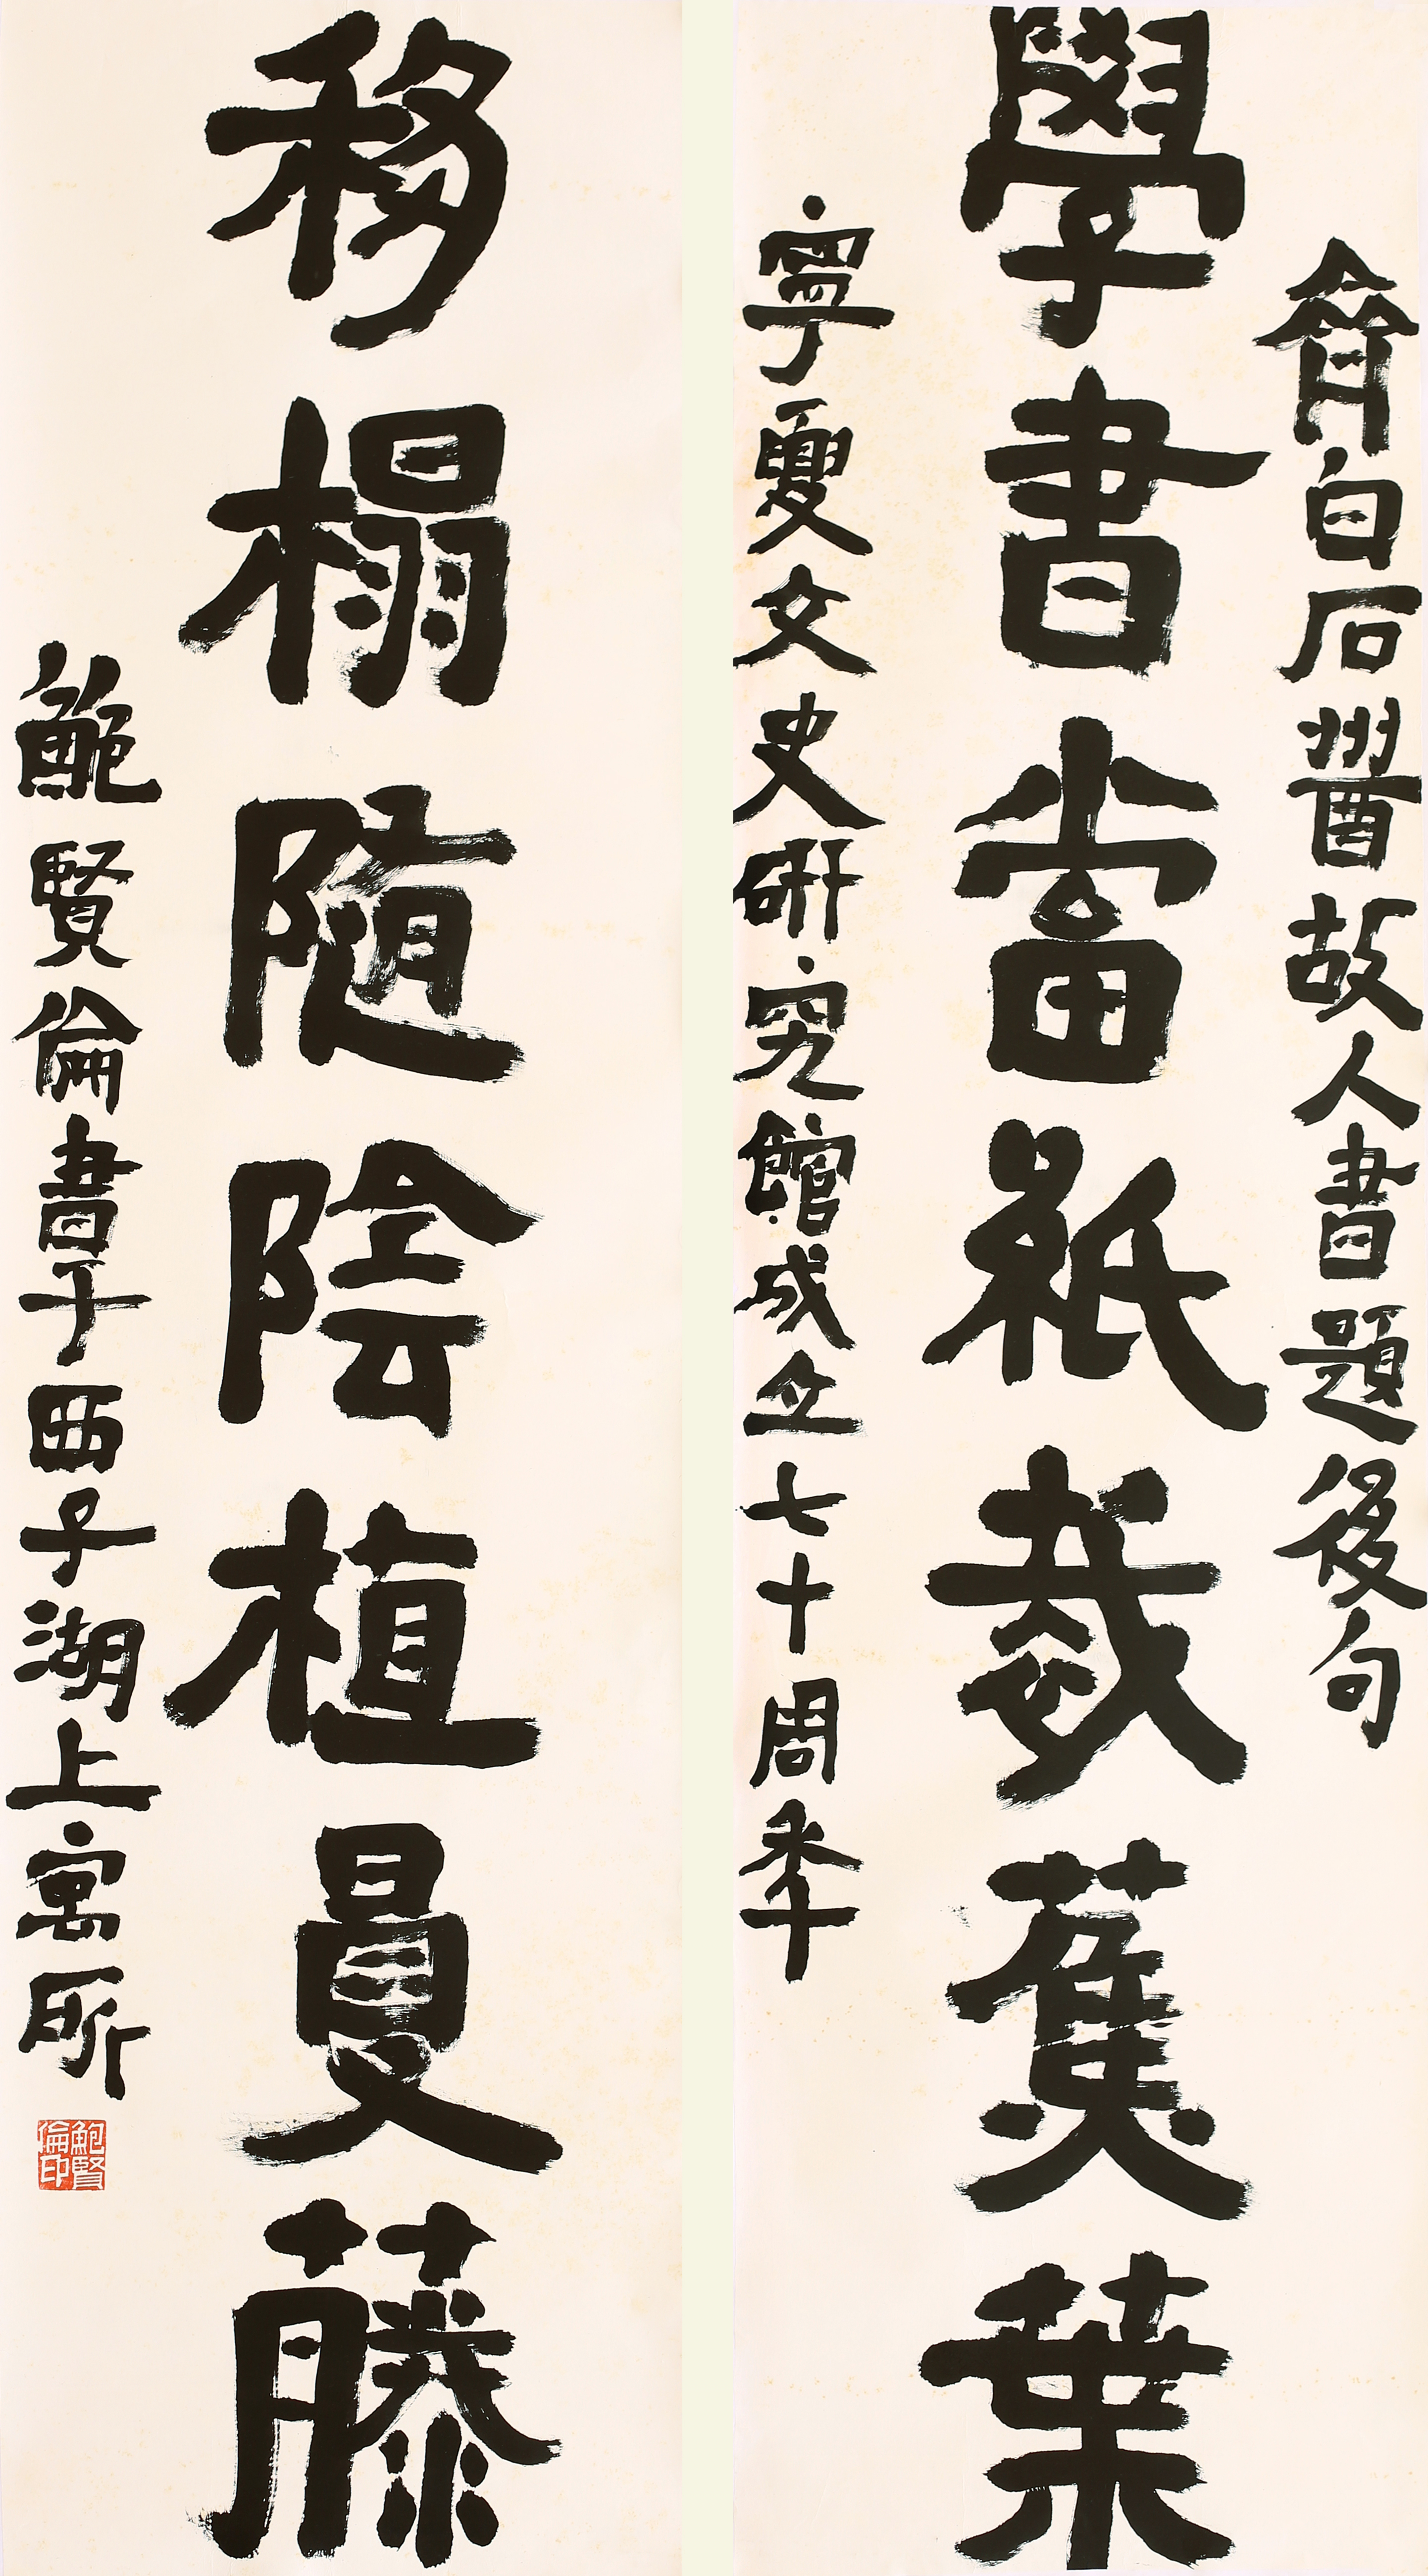 齊白石酬故人書題後句
學書當紙裁蕉葉
寧夏文史研究館成立七十周年
移榻隨陰植曼藤
鮑賢倫書于西子湖上寓所
鮑賢倫印